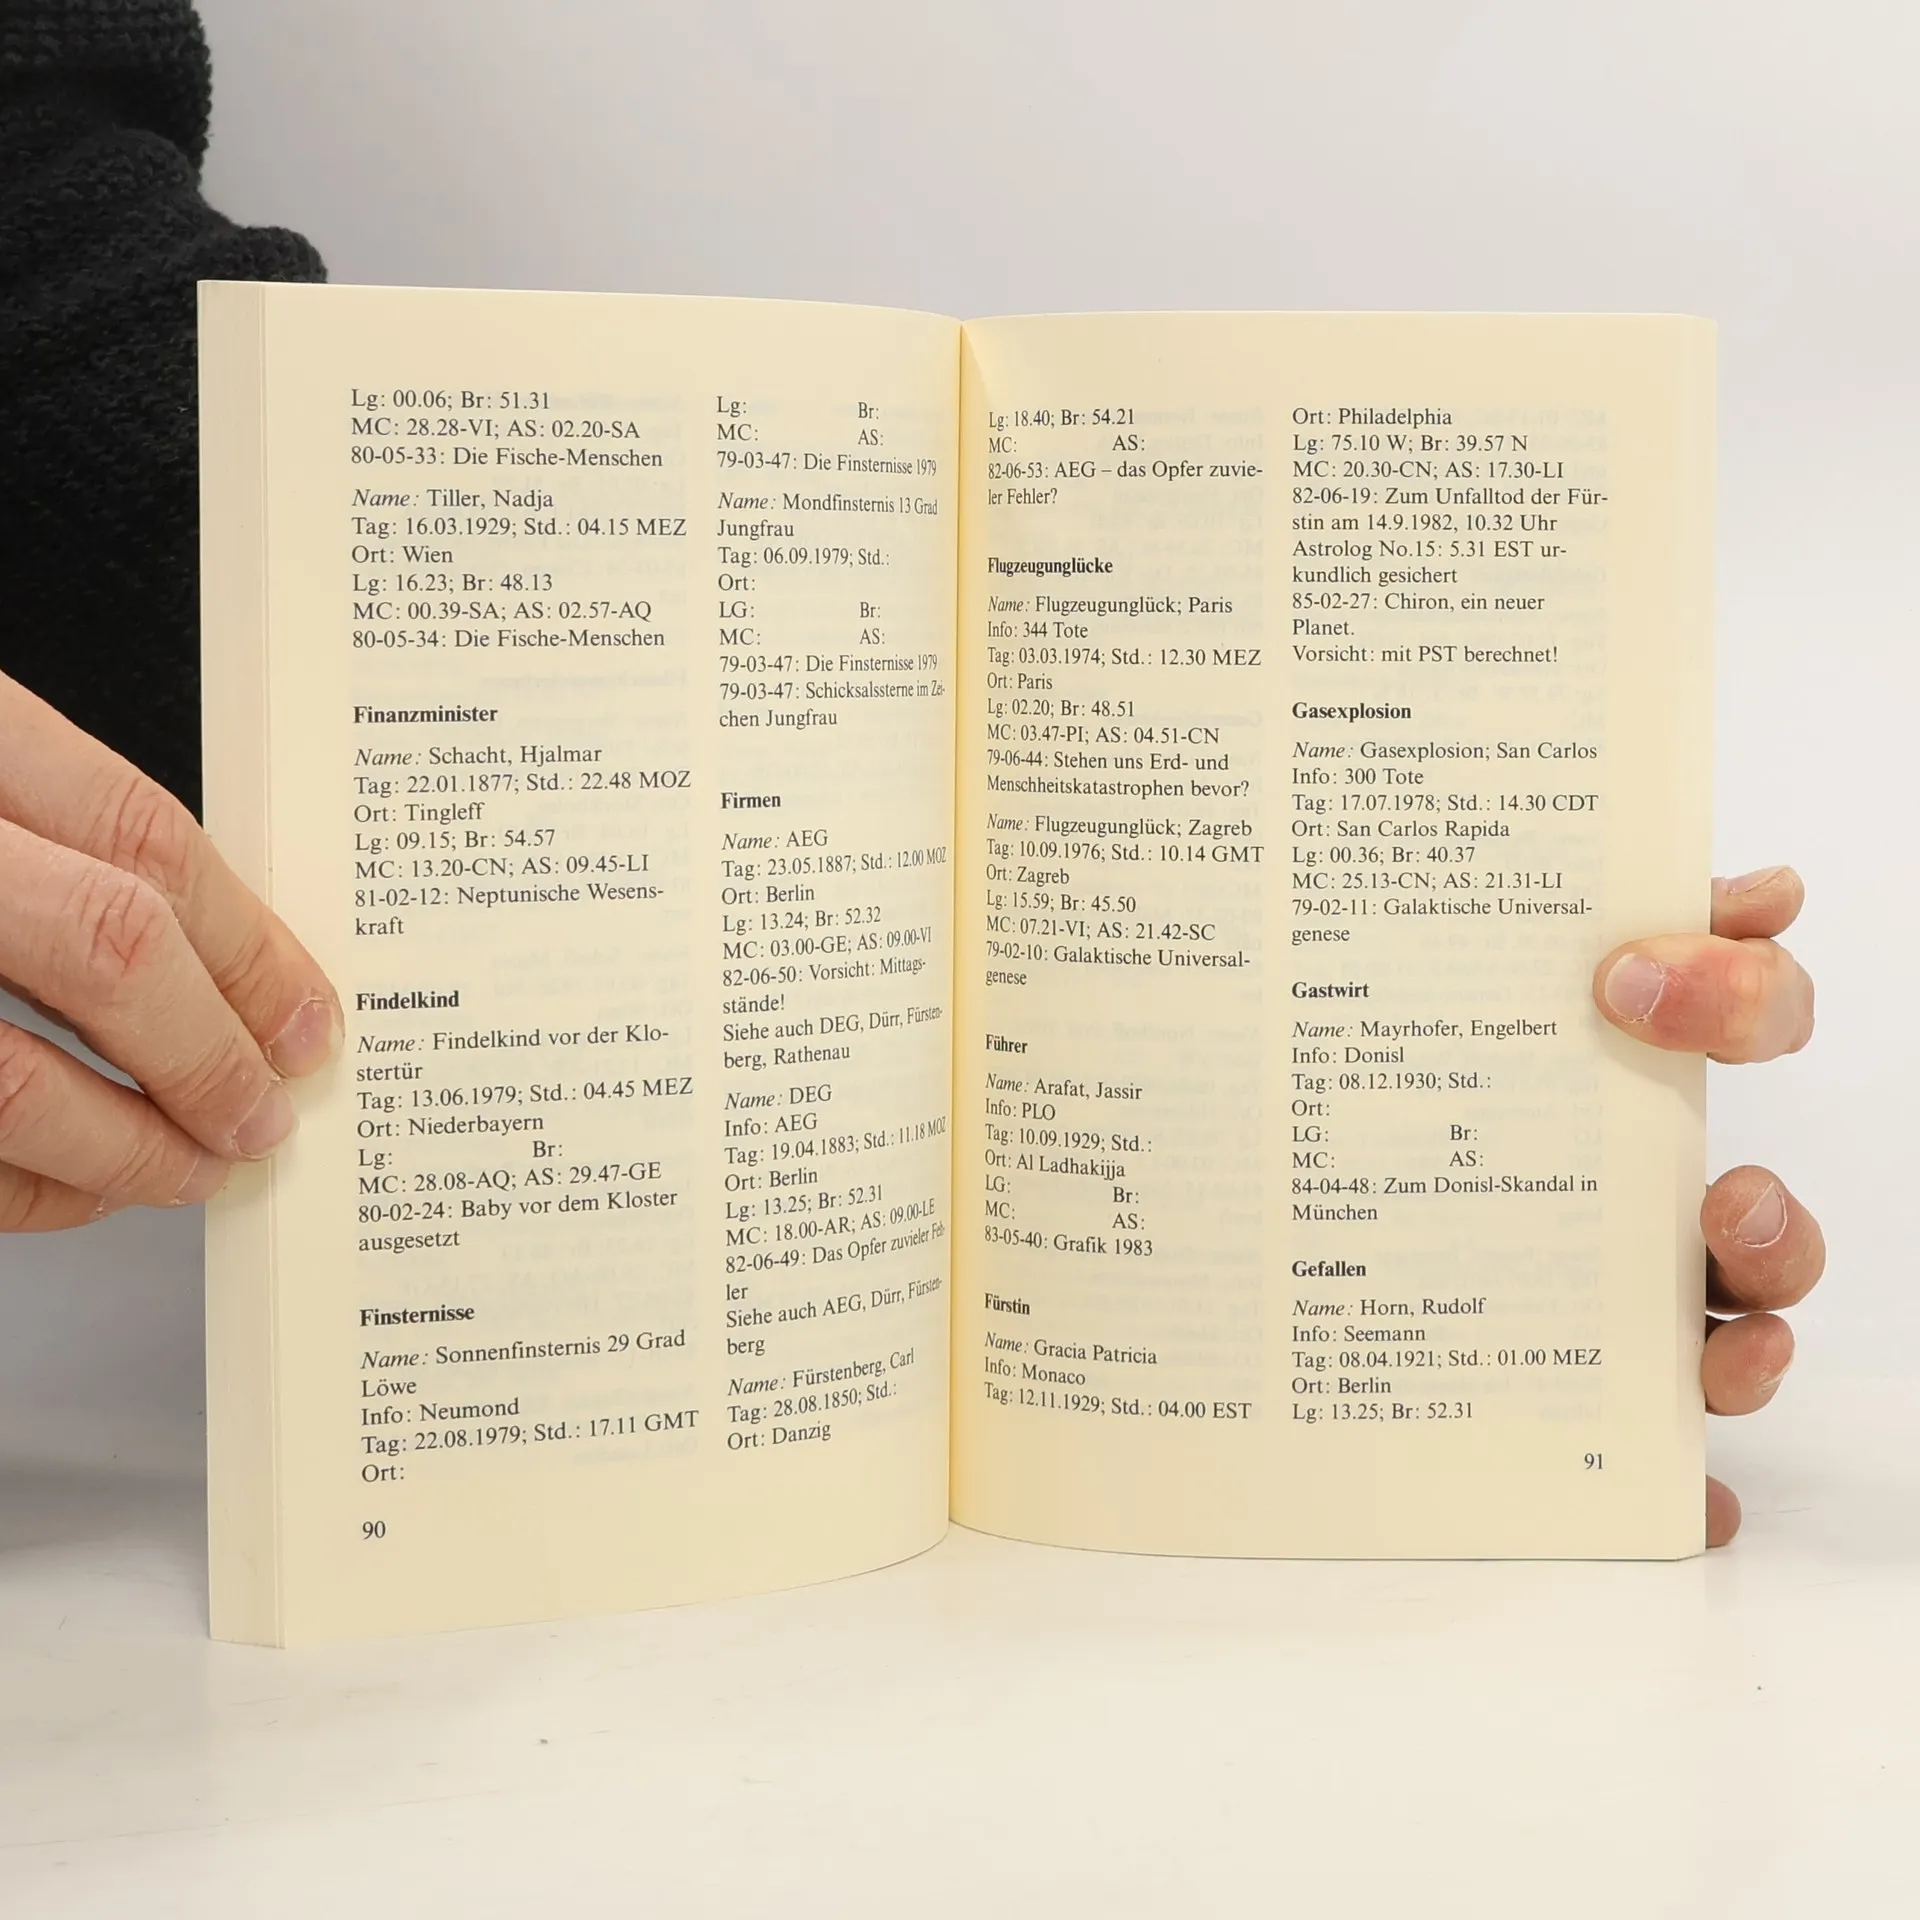 Lg: 00.06; Br: 51.31
MC: 28.28-VI; AS: 02.20-SA
80-05-33: Die Fische-Menschen
Name: Tiller, Nadja
Tag: 16.03.1929; Std.: 04.15 MEZ
Ort: Wien
Lg: 16.23; Br: 48.13
MC: 00.39-SA; AS: 02.57-AQ
80-05-34: Die Fische-Menschen
Finanzminister
Name: Schacht, Hjalmar
Tag: 22.01.1877; Std.: 22.48 MOZ
Ort: Tingleff
Lg: 09.15; Br: 54.57
MC: 13.20-CN; AS: 09.45-LI
81-02-12: Neptunische Wesens-
kraft
Findelkind
Name: Findelkind vor der Klo-
stertür
Tag: 13.06.1979; Std.: 04.45 MEZ
Ort: Niederbayern
Lg: Br:
MC: 28.08-AQ; AS: 29.47-GE
80-02-24: Baby vor dem Kloster
ausgesetzt
Finsternisse
Name: Sonnenfinsternis 29 Grad
Löwe
Info: Neumond
Tag: 22.08.1979; Std.: 17.11 GMT
Ort:
90
Lg: Br:
MC: AS:
79-03-47: Die Finsternisse 1979
Name: Mondfinsternis 13 Grad
Jungfrau
Tag: 06.09.1979; Std.:
Ort:
LG: Br:
MC: AS:
79-03-47: Die Finsternisse 1979
79-03-47: Schicksalssterne im Zei-
chen Jungfrau
Firmen
Name: AEG
Tag: 23.05.1887; Std.: 12.00 MOZ
Ort: Berlin
Lg: 13.24; Br: 52.32
MC: 03.00-GE; AS: 09.00-VI
82-06-50: Vorsicht: Mittags-
stände!
Siehe auch DEG, Dürr, Fürsten-
berg, Rathenau
Name: DEG
Info: AEG
Tag: 19.04.1883; Std.: 11.18 MOZ
Ort: Berlin
Lg: 13.25; Br: 52.31
MC: 18.00-AR; AS: 09.00-LE
82-06-49: Das Opfer zuvieler Feh-
ler
Siehe auch AEG, Dürr, Fürsten-
berg
Name: Fürstenberg, Carl
Tag: 28.08.1850; Std.:
Ort: Danzig
Lg: 18.40; Br: 54.21
MC: AS:
82-06-53: AEG – das Opfer zuvie-
ler Fehler?
Flugzeugunglücke
Name: Flugzeugunglück; Paris
Info: 344 Tote
Tag: 03.03.1974; Std.: 12.30 MEZ
Ort: Paris
Lg: 02.20; Br: 48.51
MC: 03.47-PI; AS: 04.51-CN
79-06-44: Stehen uns Erd- und
Menschheitskatastrophen bevor?
Name: Flugzeugunglück; Zagreb
Tag: 10.09.1976; Std.: 10.14 GMT
Ort: Zagreb
Lg: 15.59; Br: 45.50
MC: 07.21-VI; AS: 21.42-SC
79-02-10: Galaktische Universal-
genese
Führer
Name: Arafat, Jassir
Info: PLO
Tag: 10.09.1929; Std.:
Ort: Al Ladhakijja
LG: Br:
MC: AS:
83-05-40: Grafik 1983
Fürstin
Name: Gracia Patricia
Info: Monaco
Tag: 12.11.1929; Std.: 04.00 EST
Ort: Philadelphia
Lg: 75.10 W; Br: 39.57 N
MC: 20.30-CN; AS: 17.30-LI
82-06-19: Zum Unfalltod der Für-
stin am 14.9.1982, 10.32 Uhr
Astrolog No.15: 5.31 EST ur-
kundlich gesichert
85-02-27: Chiron, ein neuer
Planet.
Vorsicht: mit PST berechnet!
Gasexplosion
Name: Gasexplosion; San Carlos
Info: 300 Tote
Tag: 17.07.1978; Std.: 14.30 CDT
Ort: San Carlos Rapida
Lg: 00.36; Br: 40.37
MC: 25.13-CN; AS: 21.31-LI
79-02-11: Galaktische Universal-
genese
Gastwirt
Name: Mayrhofer, Engelbert
Info: Donisl
Tag: 08.12.1930; Std.:
Ort:
LG: Br:
MC: AS:
84-04-48: Zum Donisl-Skandal in
München
Gefallen
Name: Horn, Rudolf
Info: Seemann
Tag: 08.04.1921; Std.: 01.00 MEZ
Ort: Berlin
Lg: 13.25; Br: 52.31
91